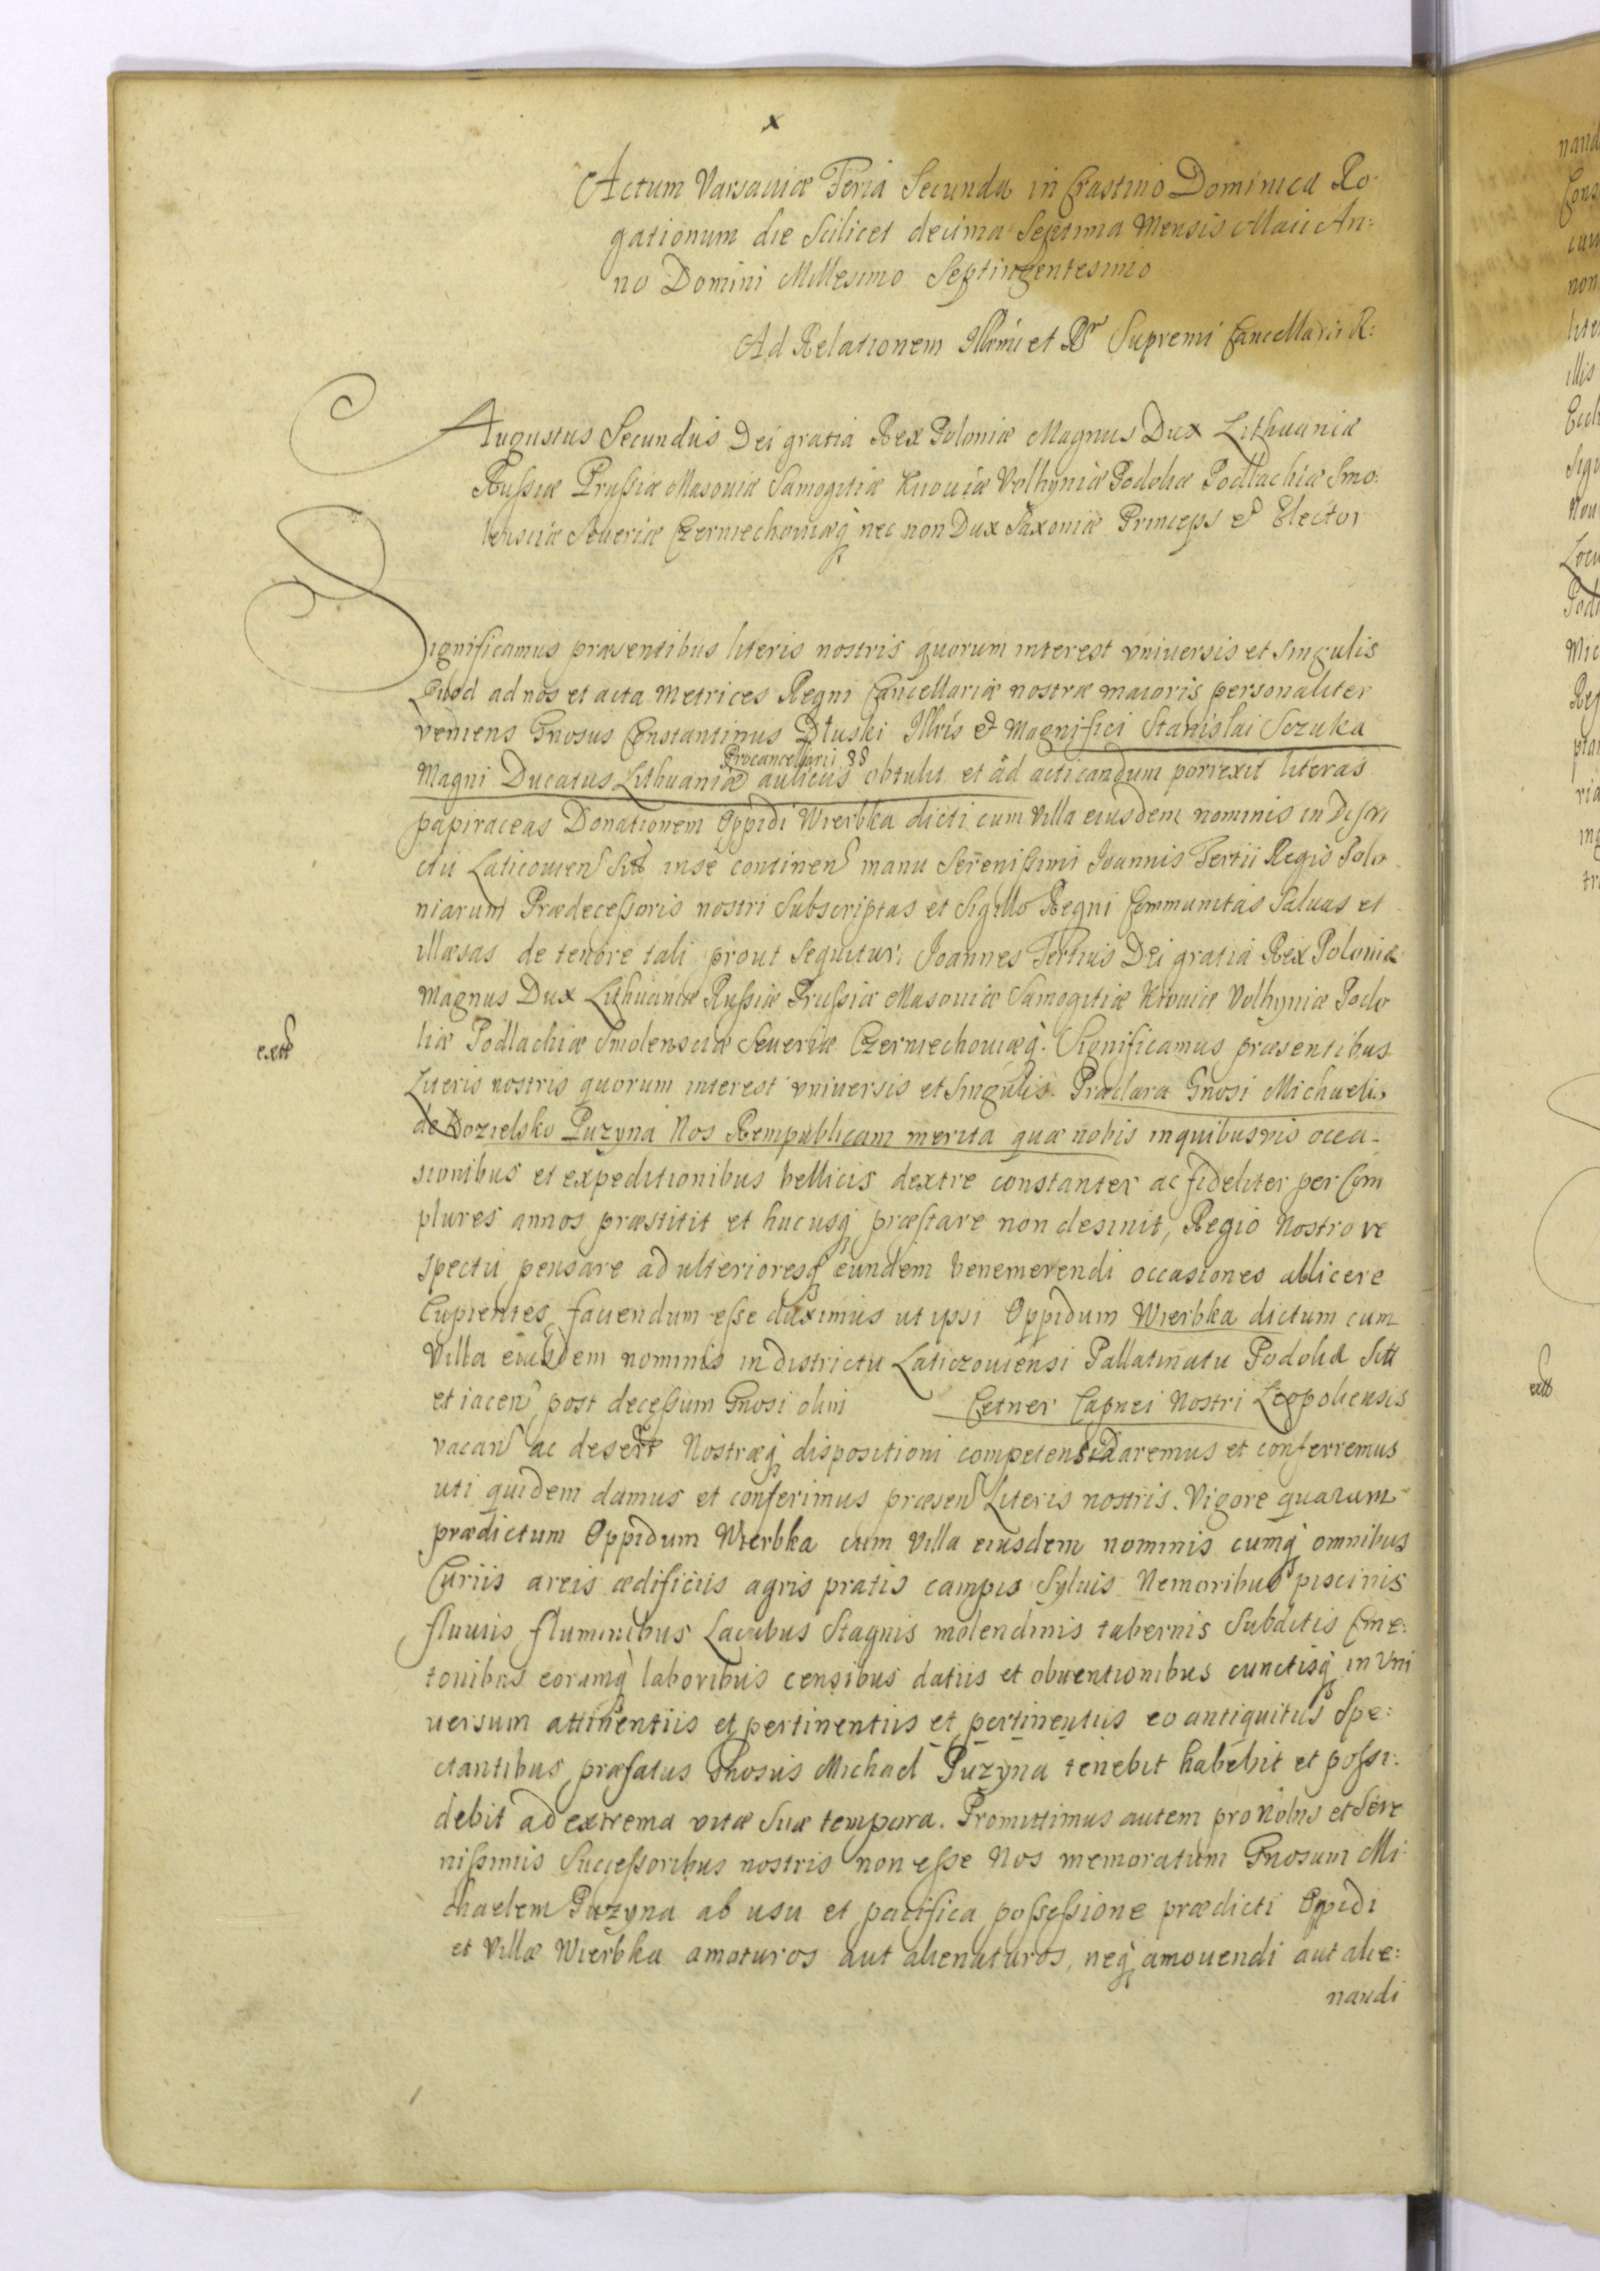 x
Actum Varsaviæ Feria Secunda in Crastino Dominica Ro-
gationum die Scilicet decima Septima Mensis Maii An:
no Domini Millesimo Septingentesimo
Ad Relationem Illrmi et Supremi Cancellarii R:
Augustus Secundus Dei gratia Rex Poloniæ Magnus Dux Lithuaniæ
Russiæ Prussiæ Masoviæ Samogitiæ Kijoviæ Volhyniæ Podoliæ Podlachiæ Smo:
lensciæ Severiæ Czerniechoviæq nec non Dux Saxoniæ Princeps et Elector
Significamus præsentibus literis nostris quorum interest vniuersis et Singulis
Quod ad nos et acta Metrices Regni Cancellariæ nostræ maioris personaliter
veniens Gnosus Constantinus Dłuski Illris et Magnifici Stanislai Sczuka
Procancellarii
Magni Ducatus Lithuaniæ aulicus obtulit et ad acticandum porrexit literas
papiraceas Donationem Oppidi Wierbka dicti cum Villa eiusdem nominis in Distri
ctu Laticouien Sitt inse continen manu Serenissimi Joannis Tertii Regis Polo
niarum Prædecessoris nostri Subscriptas et Sigillo Regni Communitas Saluas et
illæsas de tenore tali prout Sequitur: Joannes Tertius Dei gratia Rex Poloniæ
Magnus Dux Lithuaniæ Russiæ Prussiæ Masouiæ Samogitiæ Kiouiæ Volhyniæ Podo
liæ Podlachiæ Smolensciæ Seueriæ Czerniechouiæq. Significamus præsentibus
Literis nostris quorum interest vniuersis et Singulis. Præclara Gnosi Michaelis
de Kozielsko Puzyna Nos Rempublicam merita quæ nobis in quibusvis occa-
sionibus et expeditionibus bellicis dextre constanter ac fideliter per Com
plures annos præstitit et hucusq præstare non desinit, Regio Nostro re
spectu pensare ad ulterioresq eundem benemerendi occasiones allicere
Cupientes, fauendum esse duximus ut ipsi Oppidum Wierbka dictum cum
Villa eiusdem nominis in districtu Laticzouiensi Pallatinatu Podoliæ Sitt
et iacen post decessum Gnosi olim Cetner Capnei Nostri Leopoliensis
vacan ac desert Nostræq dispositioni competens daremus et conferremus
uti quidem damus et conferimus præsen Literis nostris. Vigore quarum
prædictum Oppidum Wierbka cum Villa eiusdem nominis cumq omnibus
Curiis areis ædificiis agris pratis campis Syluis Nemoribus piscinis
fluuiis fluminibus Lacubus Stagnis molendinis tabernis Subditis Cme:
tonibus eorumq laboribus censibus datiis et obuentionibus cunctisq in Vni
uersum attinentiis et pertinentiis et pertinentiis eo antiquitus Spe:
ctantibus præfatus Gnosus Michael Puzyna tenebit habebit et possi:
debit ad extrema vitæ Suæ tempora. Promittimus autem pro Nobis et Sere
nissimis Successoribus nostris non esse Nos memoratum Gnosum Mi
chaelem Puzyna ab usu et pacifica possessione prædicti Oppidi
et Villæ Wierbka amoturos aut alienaturos, neq amouendi aut alie:
nandi